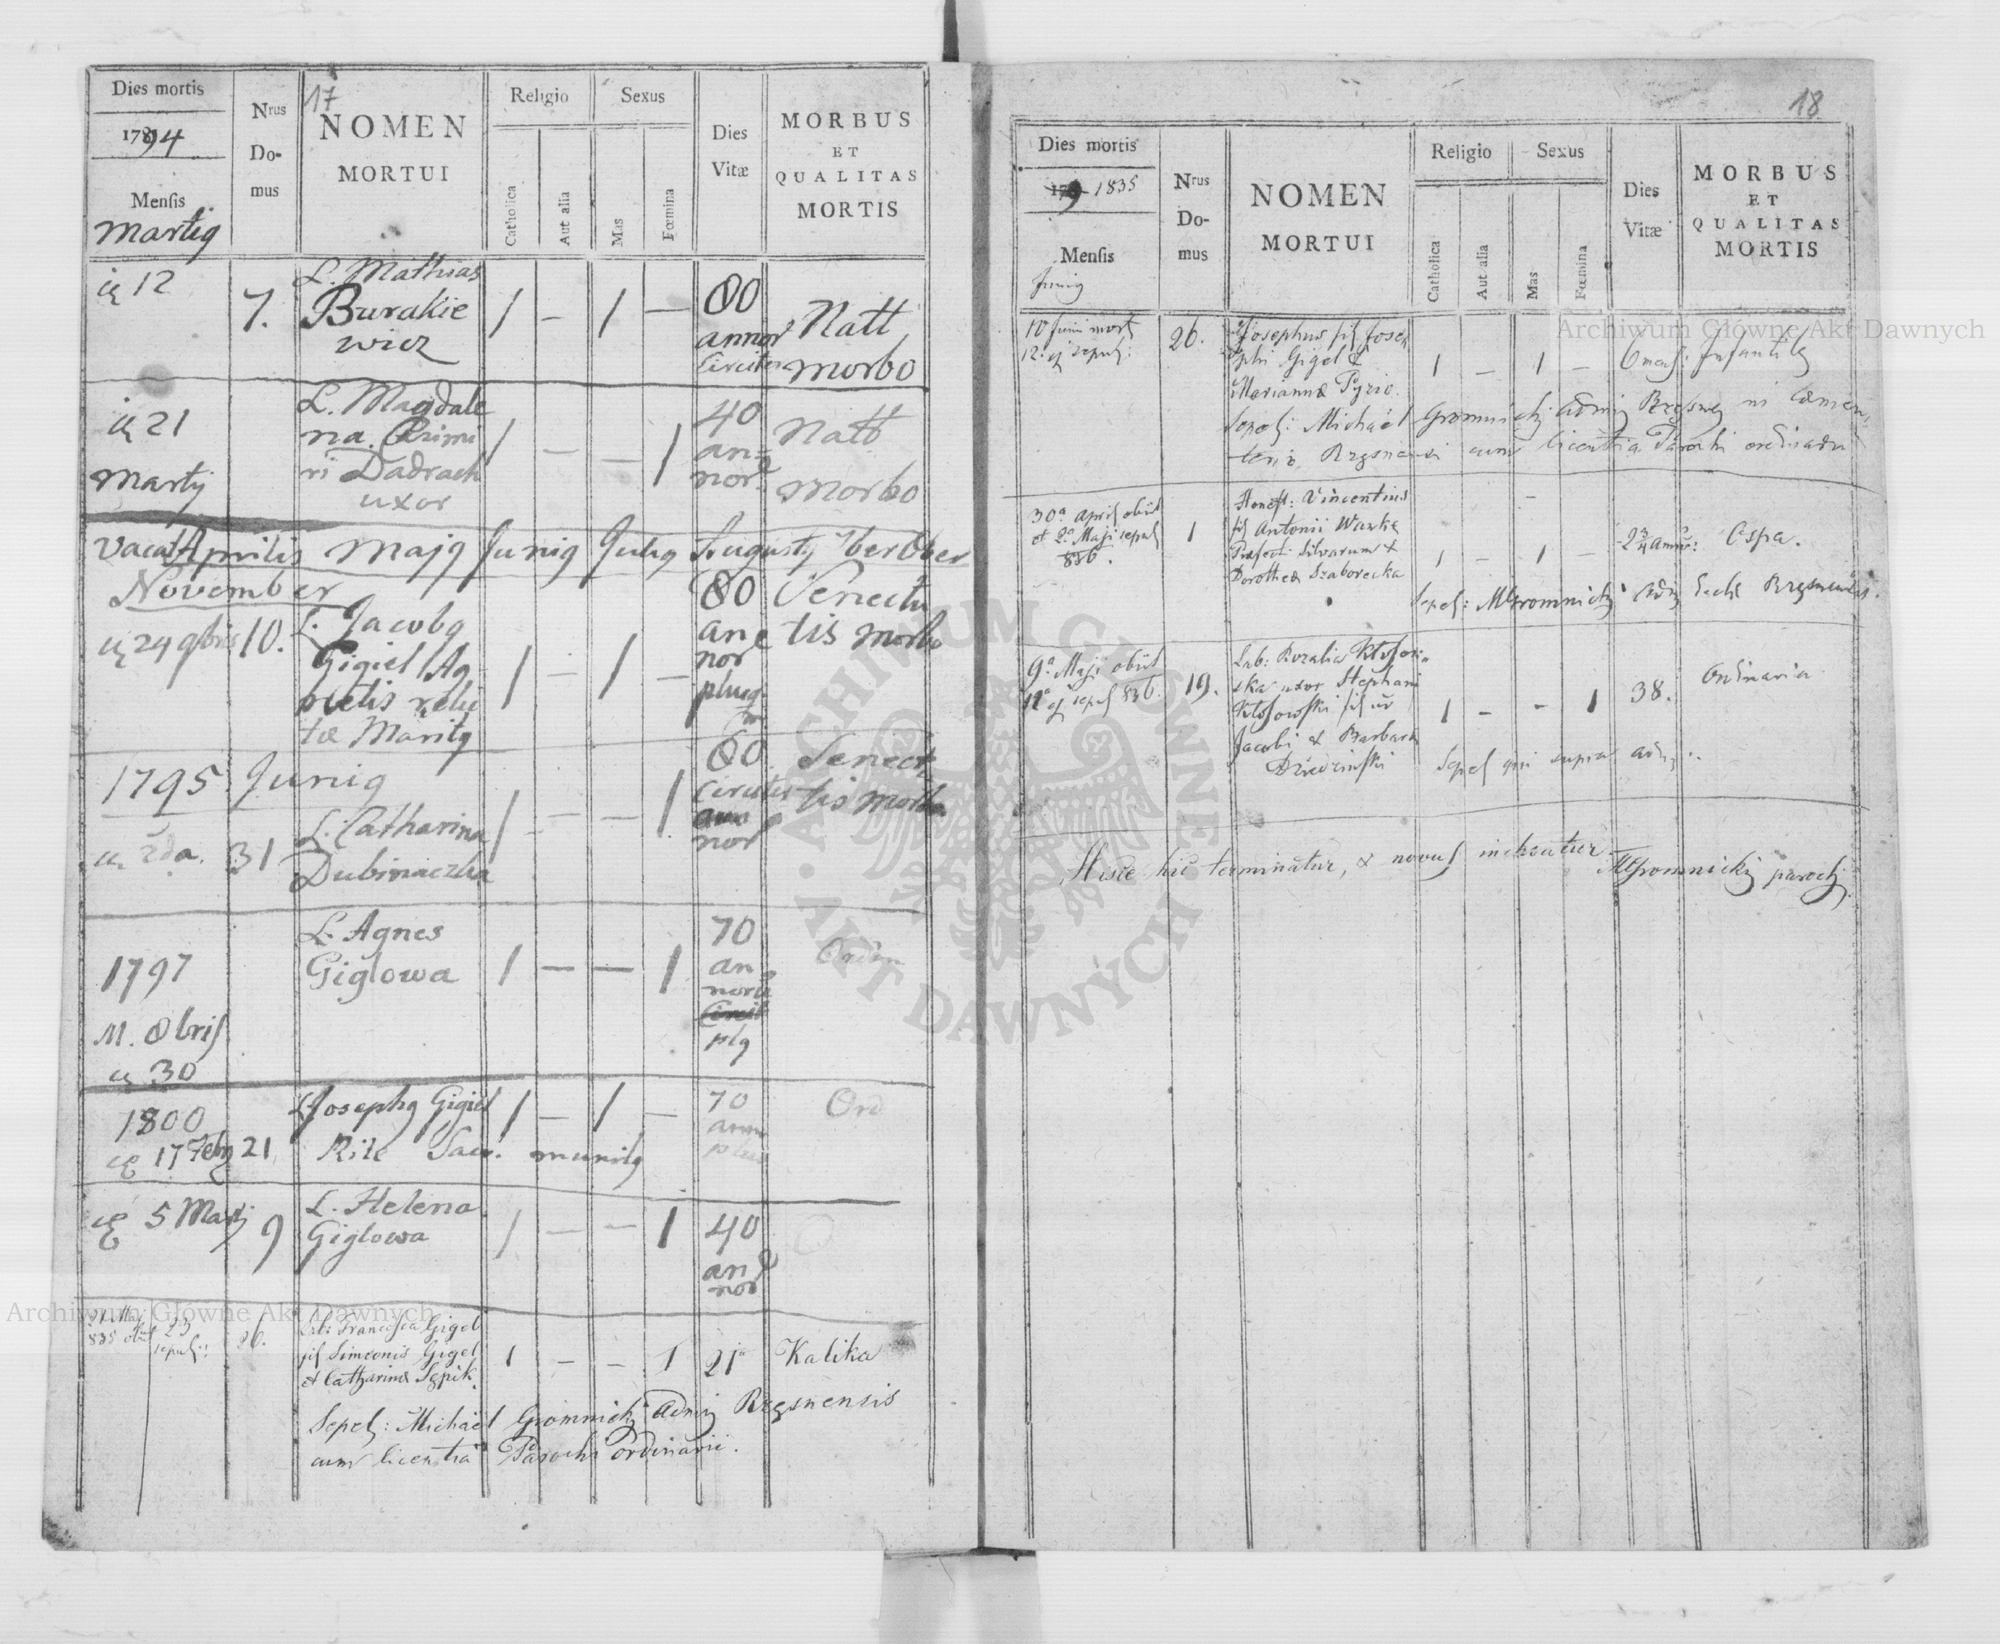 17
Dies mortis
1794
Mensis
Martij
Nrus
Do-
mus
NOMEN
MORTUI
Religio
Catholica
Aut alia
Sexus
Mas
Fœmina
Dies
Vitæ
MORBUS
ET
QUALITAS
MORTIS
12
7.
L. Mathias
Burakie
wicz
1 – 1 –
80
annor
circiter
Natt
morbo
21
Martij
L. Magdale
na
ri Dadrach
uxor
1 – – 1
40
an
nor
Natt
Morbo
Vacat Aprilis Majq Juniq Juliq Augustq 7ber 8ber
November
24 9bris
10.
L. Jacobq
Gigiel Ag
netis relic
tæ Maritq
1 – 1 –
80
an
nor
plusq
Senectu
tis morbo
1795 Juniq
2da.
31
L. Catharina
Dubiniaczka
1 – – 1
80
circiter
nor
Senectu
tis morbo
1797
M. 8bris
30
L. Agnes
Giglowa
1 – – 1
70
an
nor
plq
Ordin
1800
17 Febr
21
L. Josephq Gigiel
Rite Sacr. munitq
1 – 1 –
70
Ord
5 Martij
9
L. Helena
Giglowa
1 – – 1
40
an
nor
21 Maj
835 obiit 23
sepul:
26.
Lab: Francisca Gigel
fil Simeonis Gigel
et Catharinæ Sępik
1 – – 1
21
Kalika
Sepel: Michael Gromnicki Admin Rzęsnensis
cum licentia Parochi ordinarii.
18
Dies mortis
179 1835
Mensis
Juniq
Nrus
Do-
mus
NOMEN
MORTUI
Religio
Catholica
Aut alia
Sexus
Mas
Fœmina
Dies
Vitæ
MORBUS
ET
QUALITAS
MORTIS
10 Junii mort
12. ej sepul:
26.
Josephus fil Jose
phi Gigel &
Mariannæ Pyzio.
1 – 1 –
6 mens:
Infantil
Sepel: Michael Gromnicki Admin Rzęsney in Cœmen
terio Rzęsnensi cum licentia Parochi ordinarii
30a April obiit
et 2a Maji sepul
836.
1
Honest: Vincentius
fil Antonii Warke
Præfecti Silvarum &
Dorothea Szaborecka
1 – 1 –
2 3/4 annor:
Cspa.
Sepel: MGromnicki Adm Eccle Rzęsnensis.
9a Maji obiit
11a ej sepul 836.
19.
Lab: Rozalia Kłosow
ska uxor Stephani
Kłosowski fil
Jacobi & Barbara
Dziedzinski
1 – – 1
38.
Ordinaria
Sepel qui supra adm.
Misce hic terminatur, & novus inchoatur MGromnicki paroch.
Archiwum Główne Akt Dawnych
Archiwum Główne Akt Dawnych
ARCHIWUM GŁÓWNE
AKT DAWNYCH